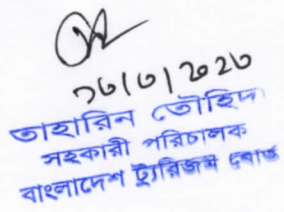 ১৬/৩/২০২৩
তাহারিন তৌহিদা
সহকারী পরিচালক
বাংলাদেশ ট্যুরিজম বোর্ড